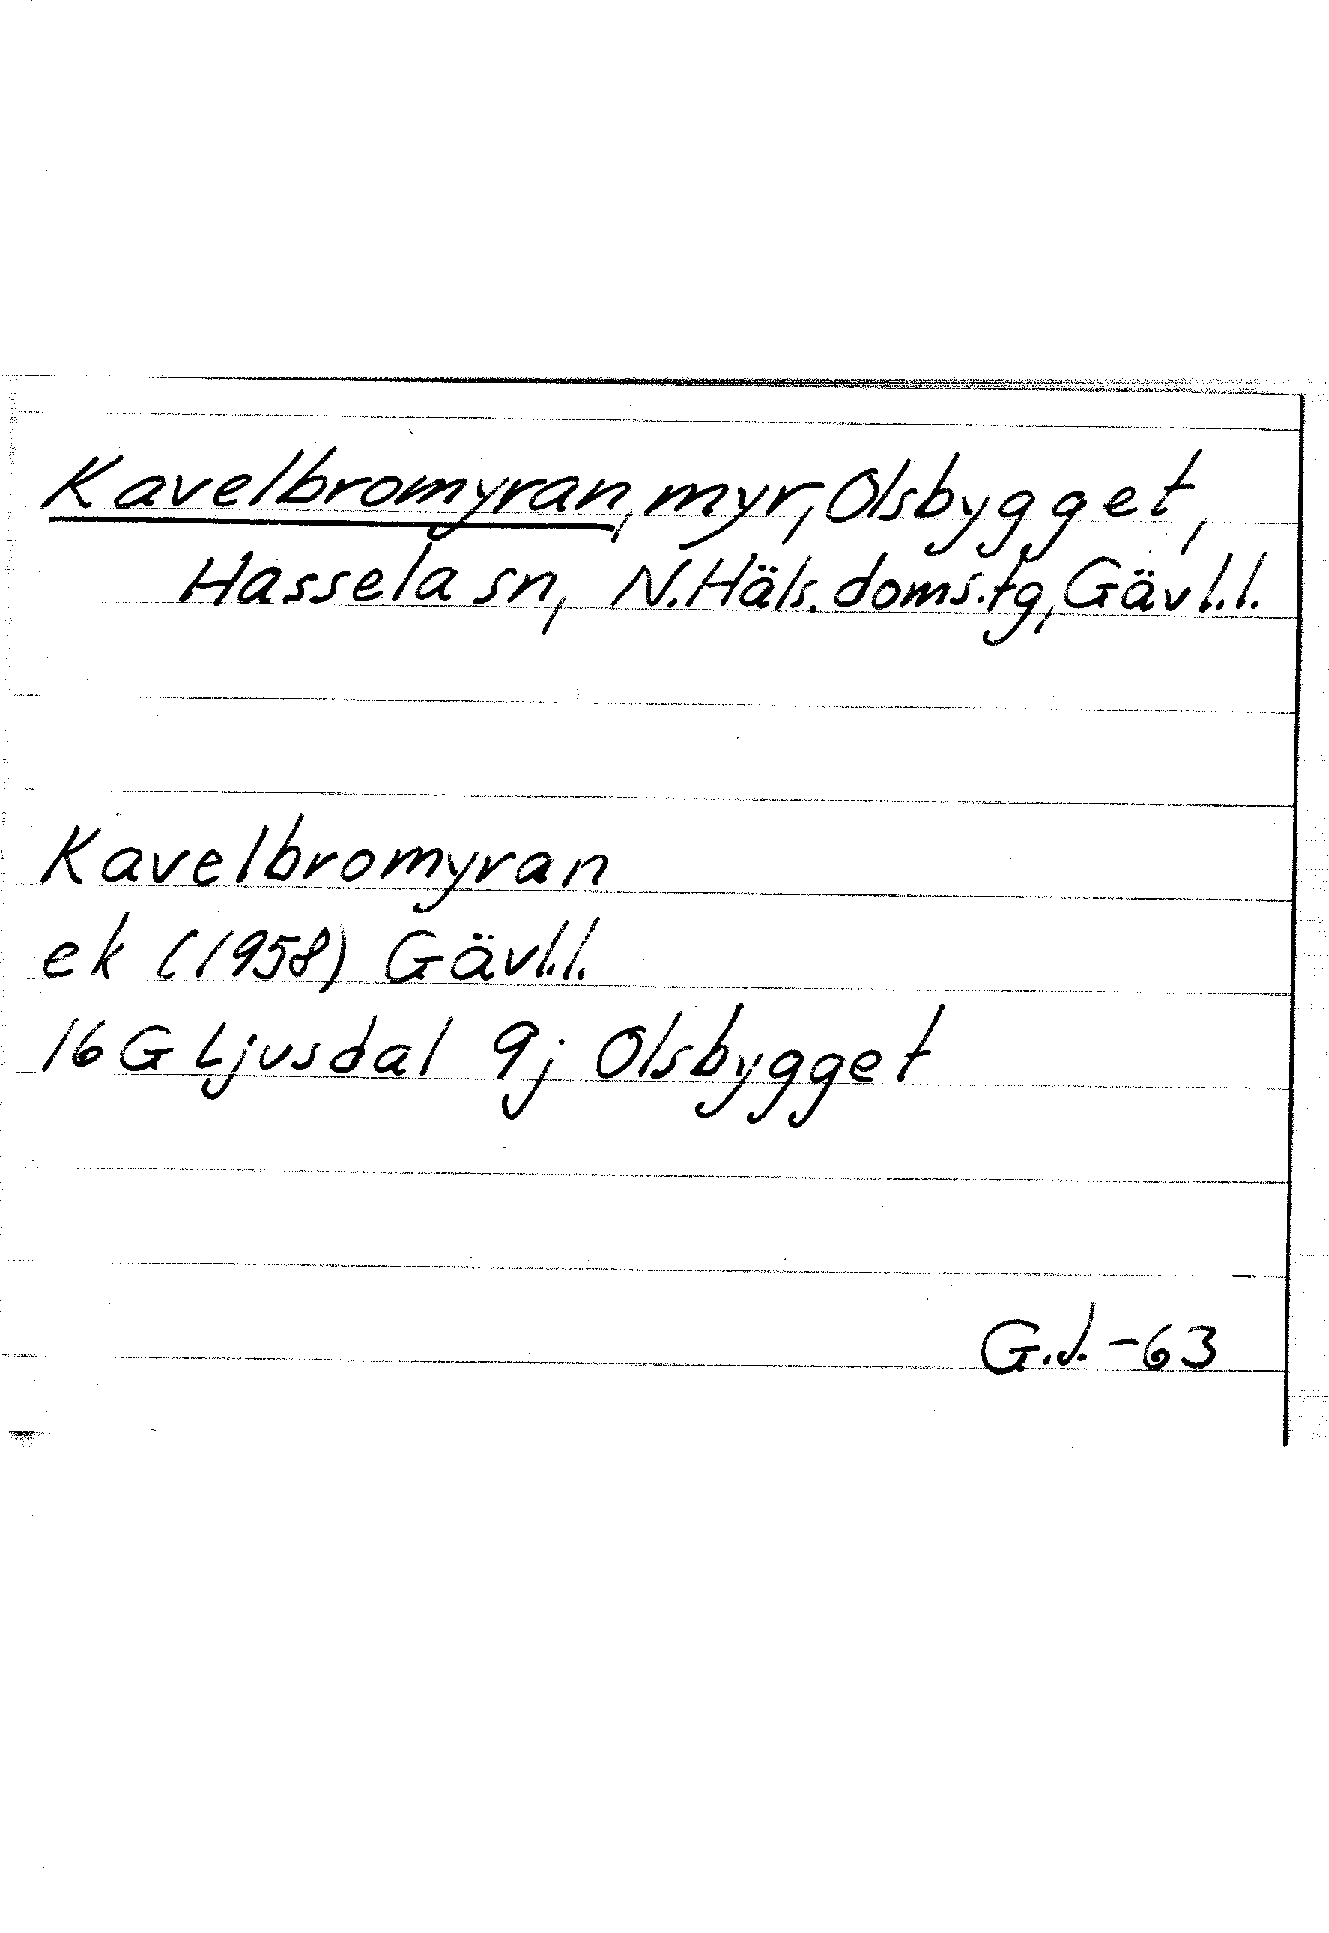 Kavelbromyran, myr, Olsbygget,
Hassela sn, N.Häls.doms.tg, Gävl.l.
Kavelbromyran
ek (1958) Gävl.l.
16G Ljusdal 9j Olsbygget
G.J.-63